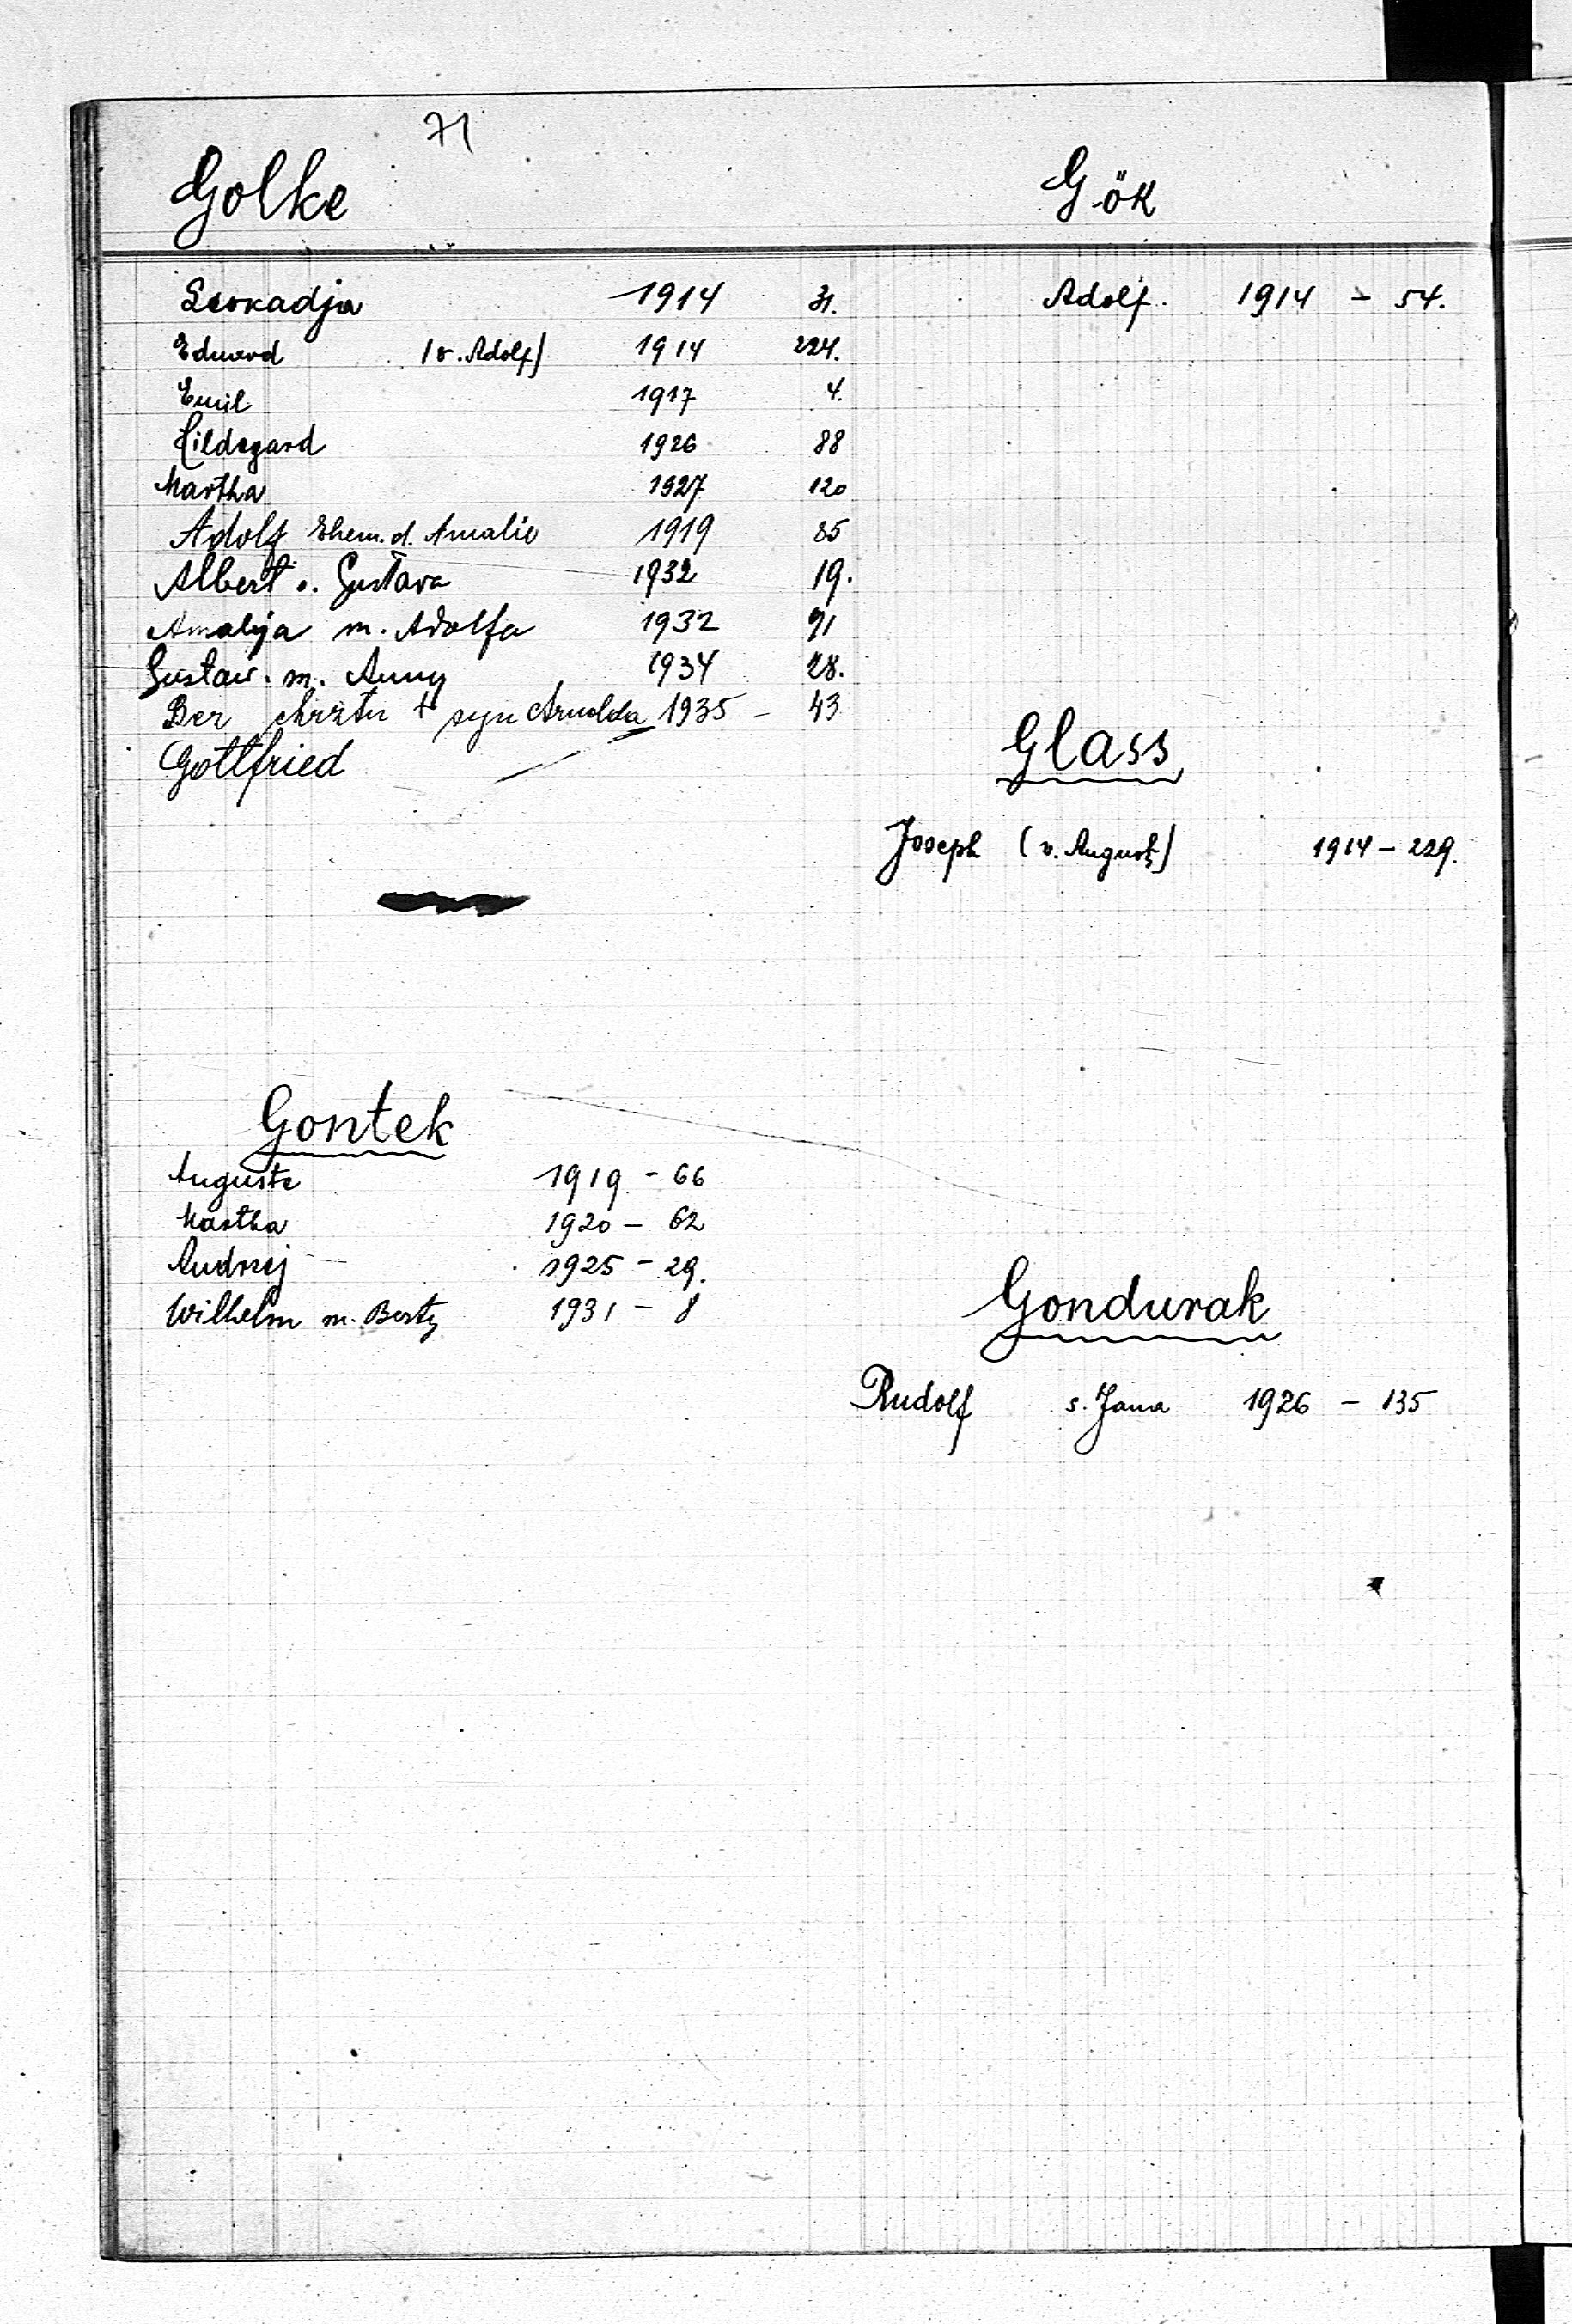 71
Golke
Leokadja 1914 31.
Eduard (v. Adolf) 1914 224.
Emil 1917 4.
Hildegard 1926 88
Martha 1927 120
Adolf Ehem. d. Amalie 1919 85
Albert s. Gustava 1932 19.
Amalija m. Adolfa 1932 91
Gustaw. m. Anny 1934 28.
Bez chrztu + syn Arnolda 1935 - 43
Gottfried
Gontek
Auguste 1919 - 66
Martha 1920 - 62
Andrzej 1925 - 29.
Wilhelm m. Berty 1931 - 8
Gök
Adolf. 1914 - 54.
Glass
Joseph (v. August) 1914 - 229.
Gondurak
Rudolf s. Jana 1926 - 135